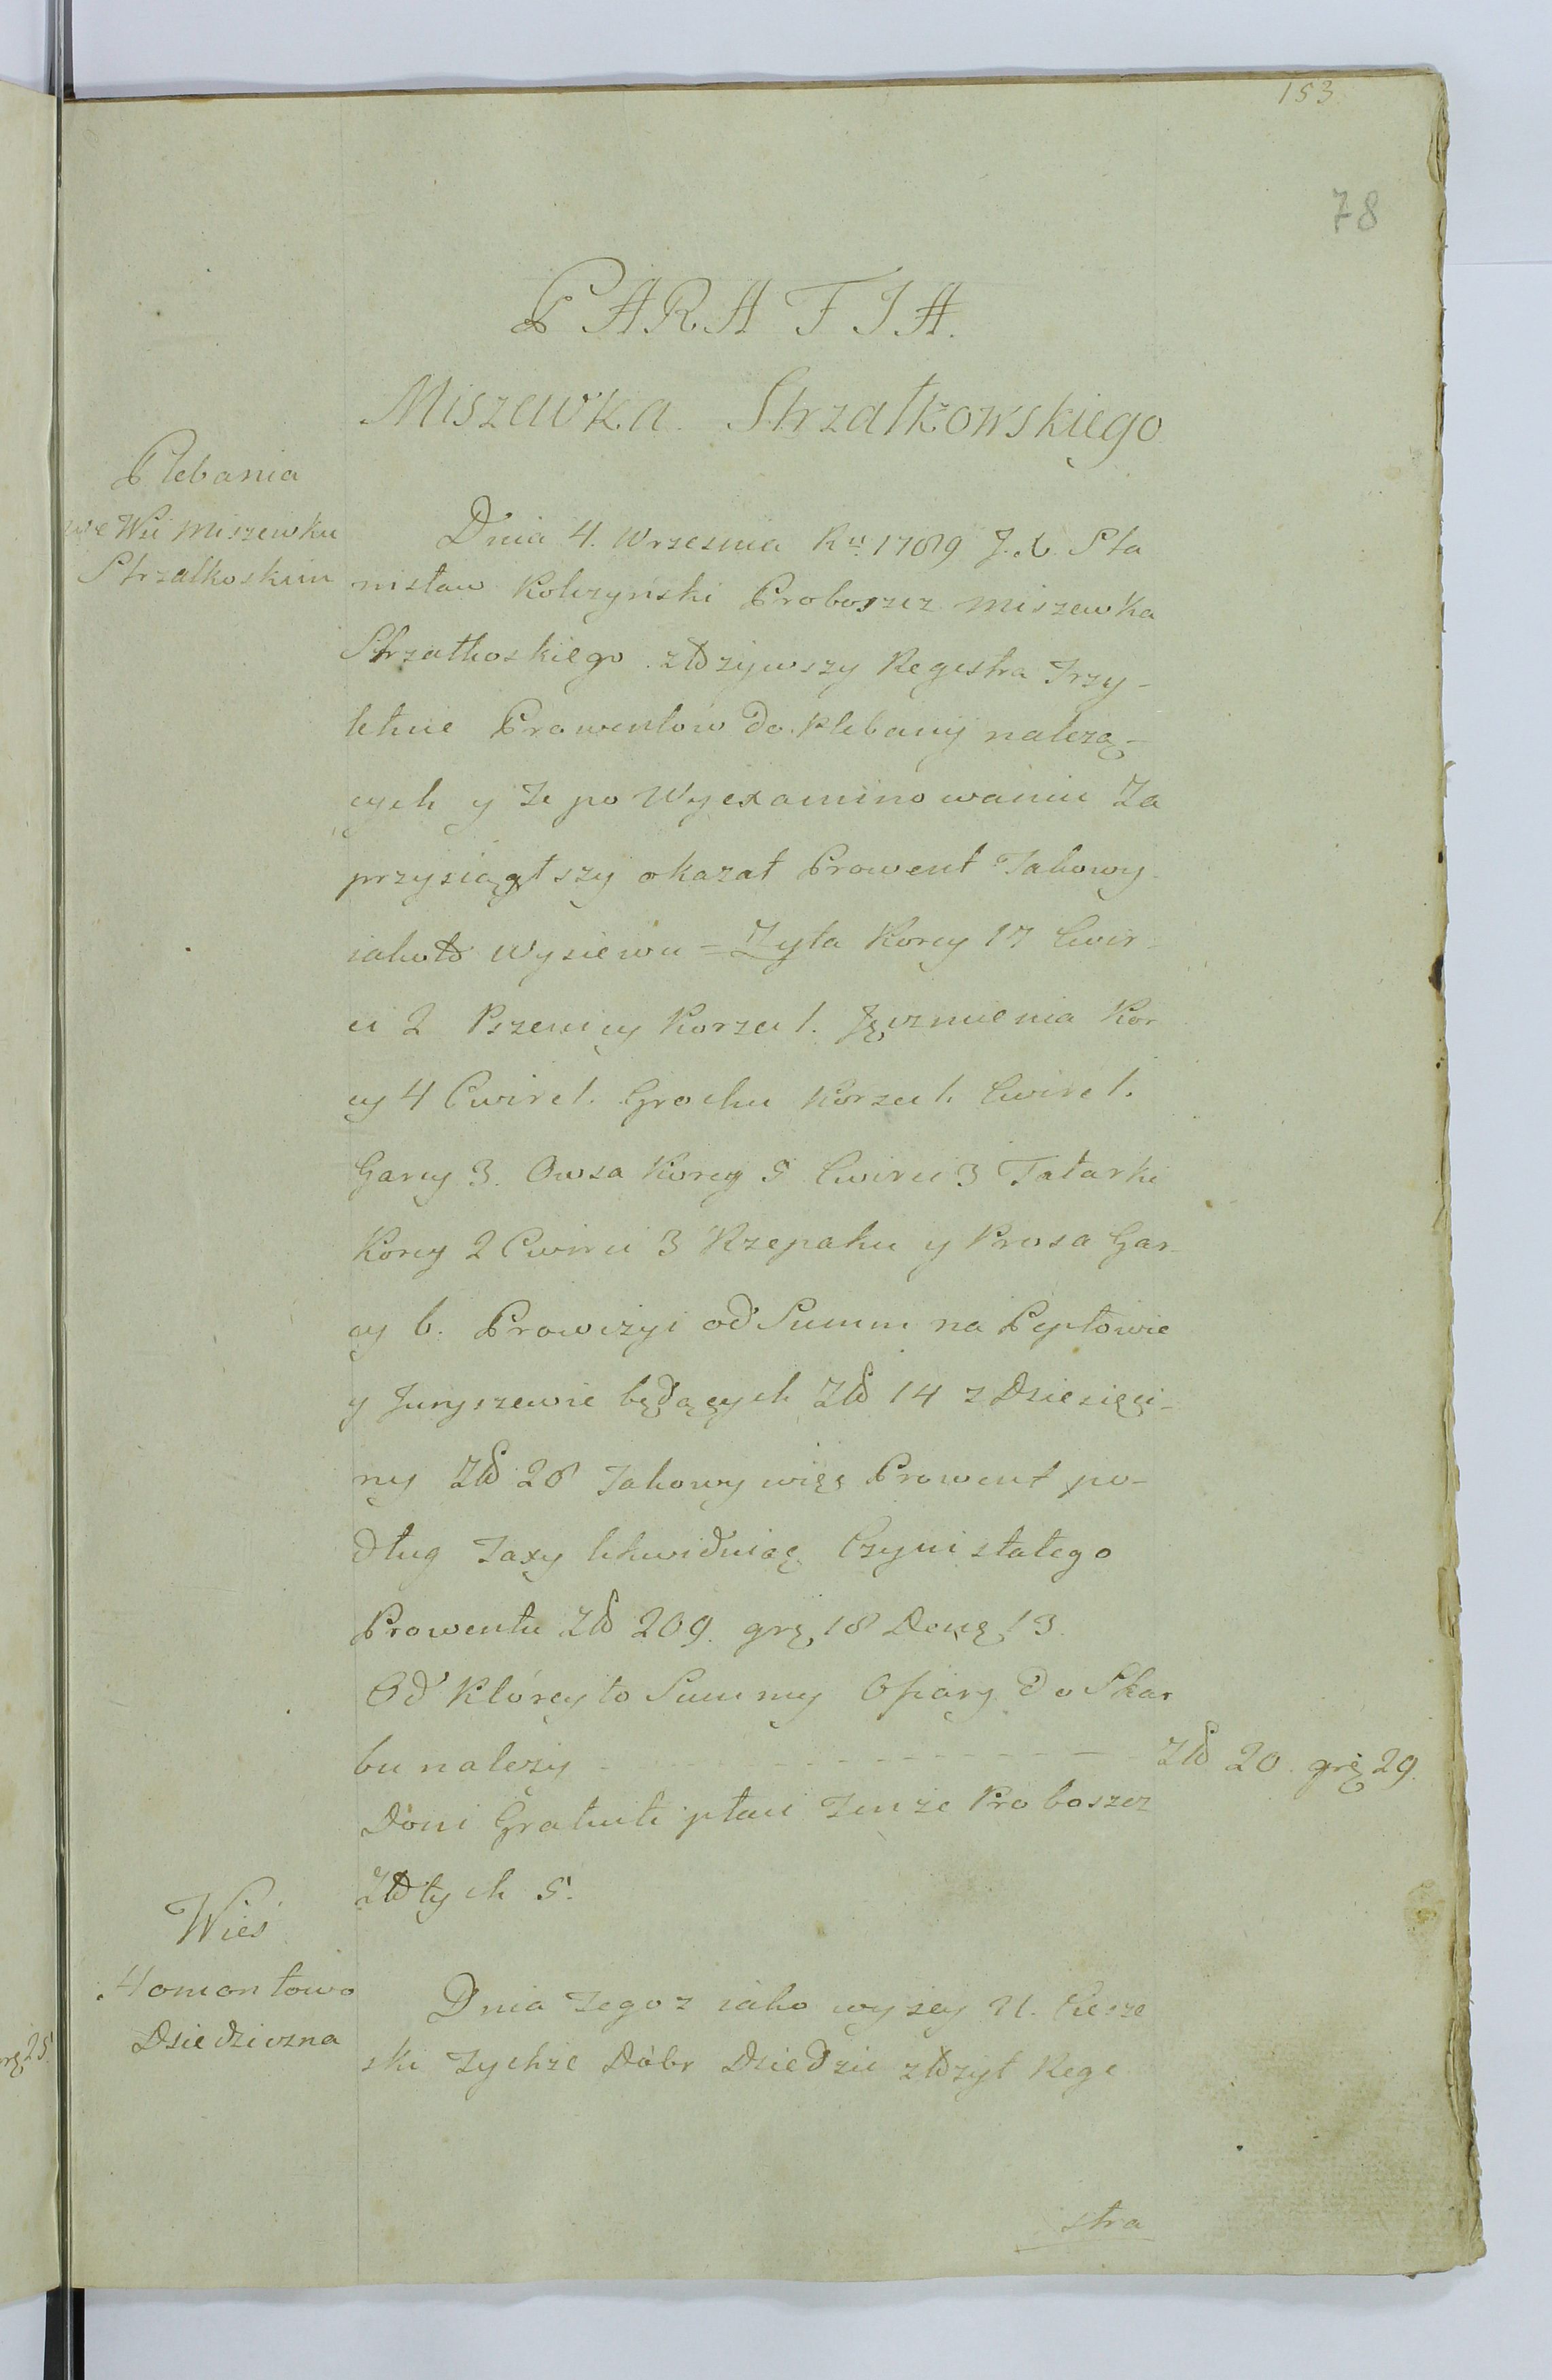 153
78
PARAFIA.
Miszewka Strzałkowskiego
Plebania
we Wsi Miszewku
Strzałkoskim
Dnia 4. Wrzesnia Ru 1789 J. X. Sta
nisław Kolczyński Proboszcz Miszewka
Strzałkoskiego złożywszy Regestra Trzy-
letnie Prowentow do Plebanij należą-
cych y Te po Wyexaminowaniu Za
przysiągłszy okazał Prowent Takowy
iakoto Wysiewu = Zyta Korcy 17 Cwir-
ci 2 Pszenicy Korzec 1. Jęczmienia Kor
cy 4 Cwirc 1. Grochu Korzec 1. Cwirc 1.
Garcy 3. Owsa Korcy 5 Cwirci 3 Tatarki
Korcy 2 Cwirci 3 Rzepaku y Prosa Gar
cy 6. Prowizyi od Summ na Peptowie
y Juryszewie będących Zło 14 z Dziesięci-
ny Zło 28 Takowy więc Prowent po-
dług Taxy likwiduiąc Czyni stałego
Prowentu Zło 209. grę 18 Deną 13.
Od Którey to Summy Ofiary do Skar
bu należy - - - - - - - - Zło 20. grę 29.
Doni Gratuiti płaci Tenże Proboszcz
Złotych 5.
Wieś
Homontowo
Dziedziczna
Dnia Tegoz iako wyzey U. Ciesze
ski Tychże Dóbr Dziedzic złożył Rege
stra
rę 25.